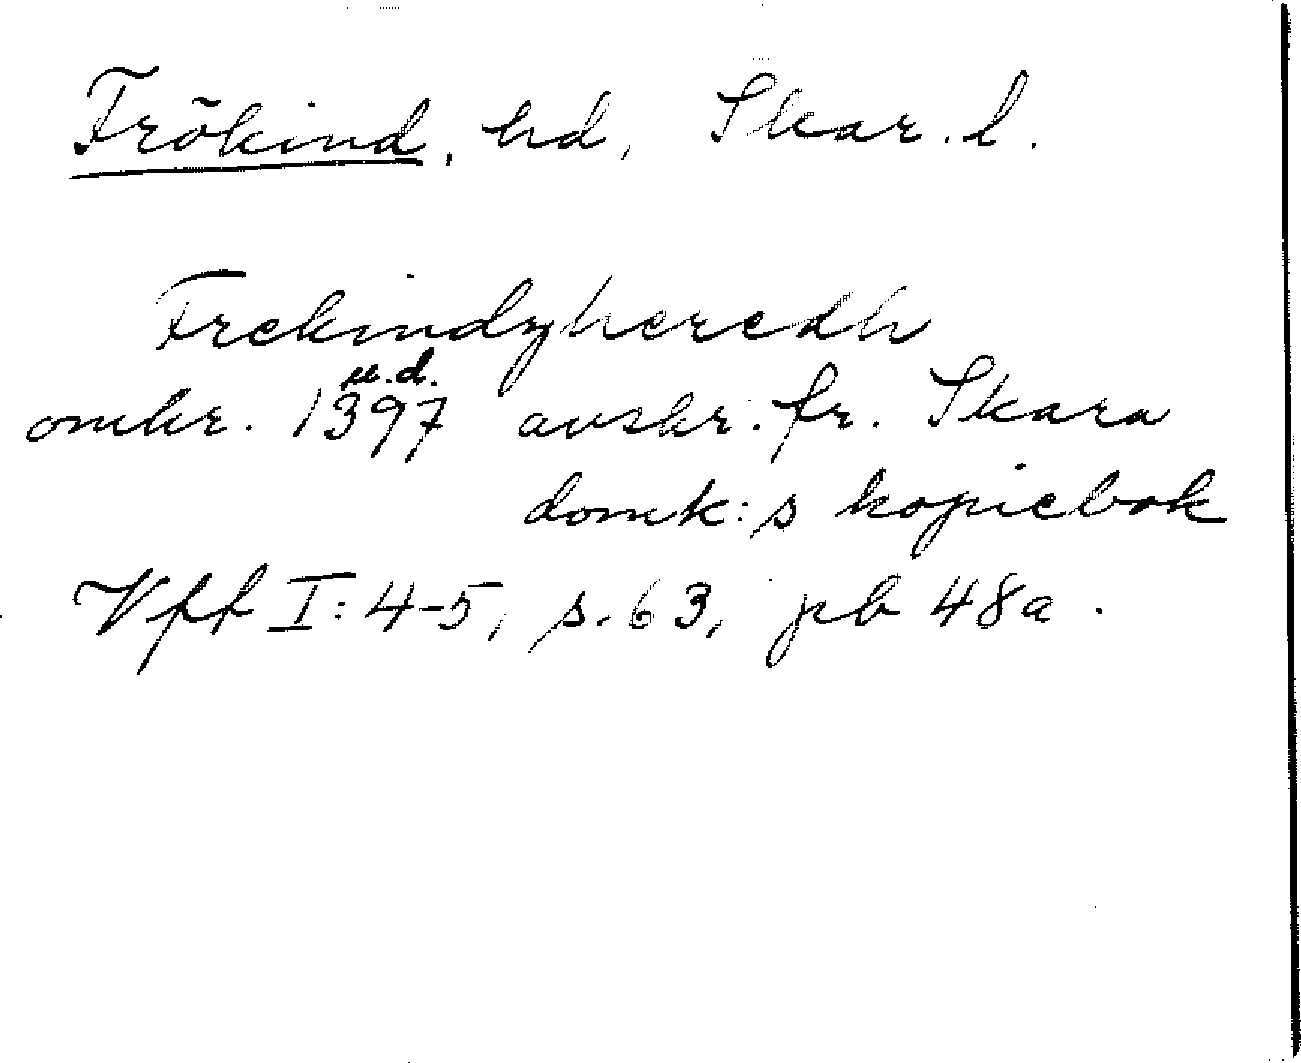 Frökind, hd, Skar. l.
Frekindyheredh
u.d.
omkr. 1397 avskr. fr. Skara
domk:s kopiebok
Vfft I: 4-5, s. 63, pb 48a.